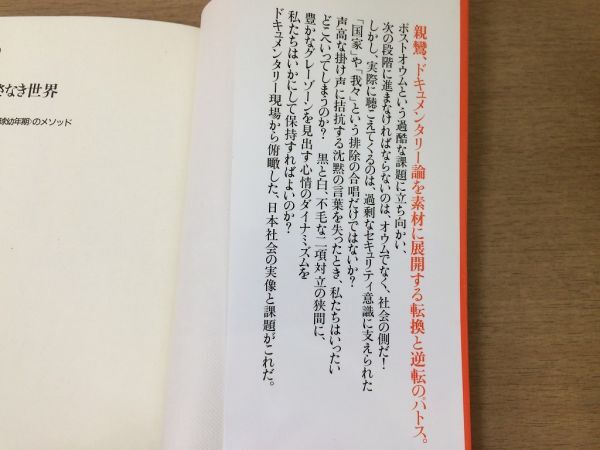 親鸞、ドキュメンタリー論を素材に展開する転換と逆転のパトス。
ポストオウムという過酷な課題に立ち向かい、
次の段階に進まなければならないのは、オウムでなく、社会の側だ！
しかし、実際に聴こえてくるのは、過剰なセキュリティ意識に支えられた
「国家」や「我々」という排除の合唱だけではないか？
声高な掛け声に拮抗する沈黙の言葉を失ったとき、私たちはいったい
どこへいってしまうのか？　黒と白、不毛な二項対立の狭間に、
豊かなグレーゾーンを見出す心情のダイナミズムを
私たちはいかにして保持すればよいのか？
ドキュメンタリー現場から俯瞰した、日本社会の実像と課題がこれだ。
さなき世界
球幼年期〉のメソッド